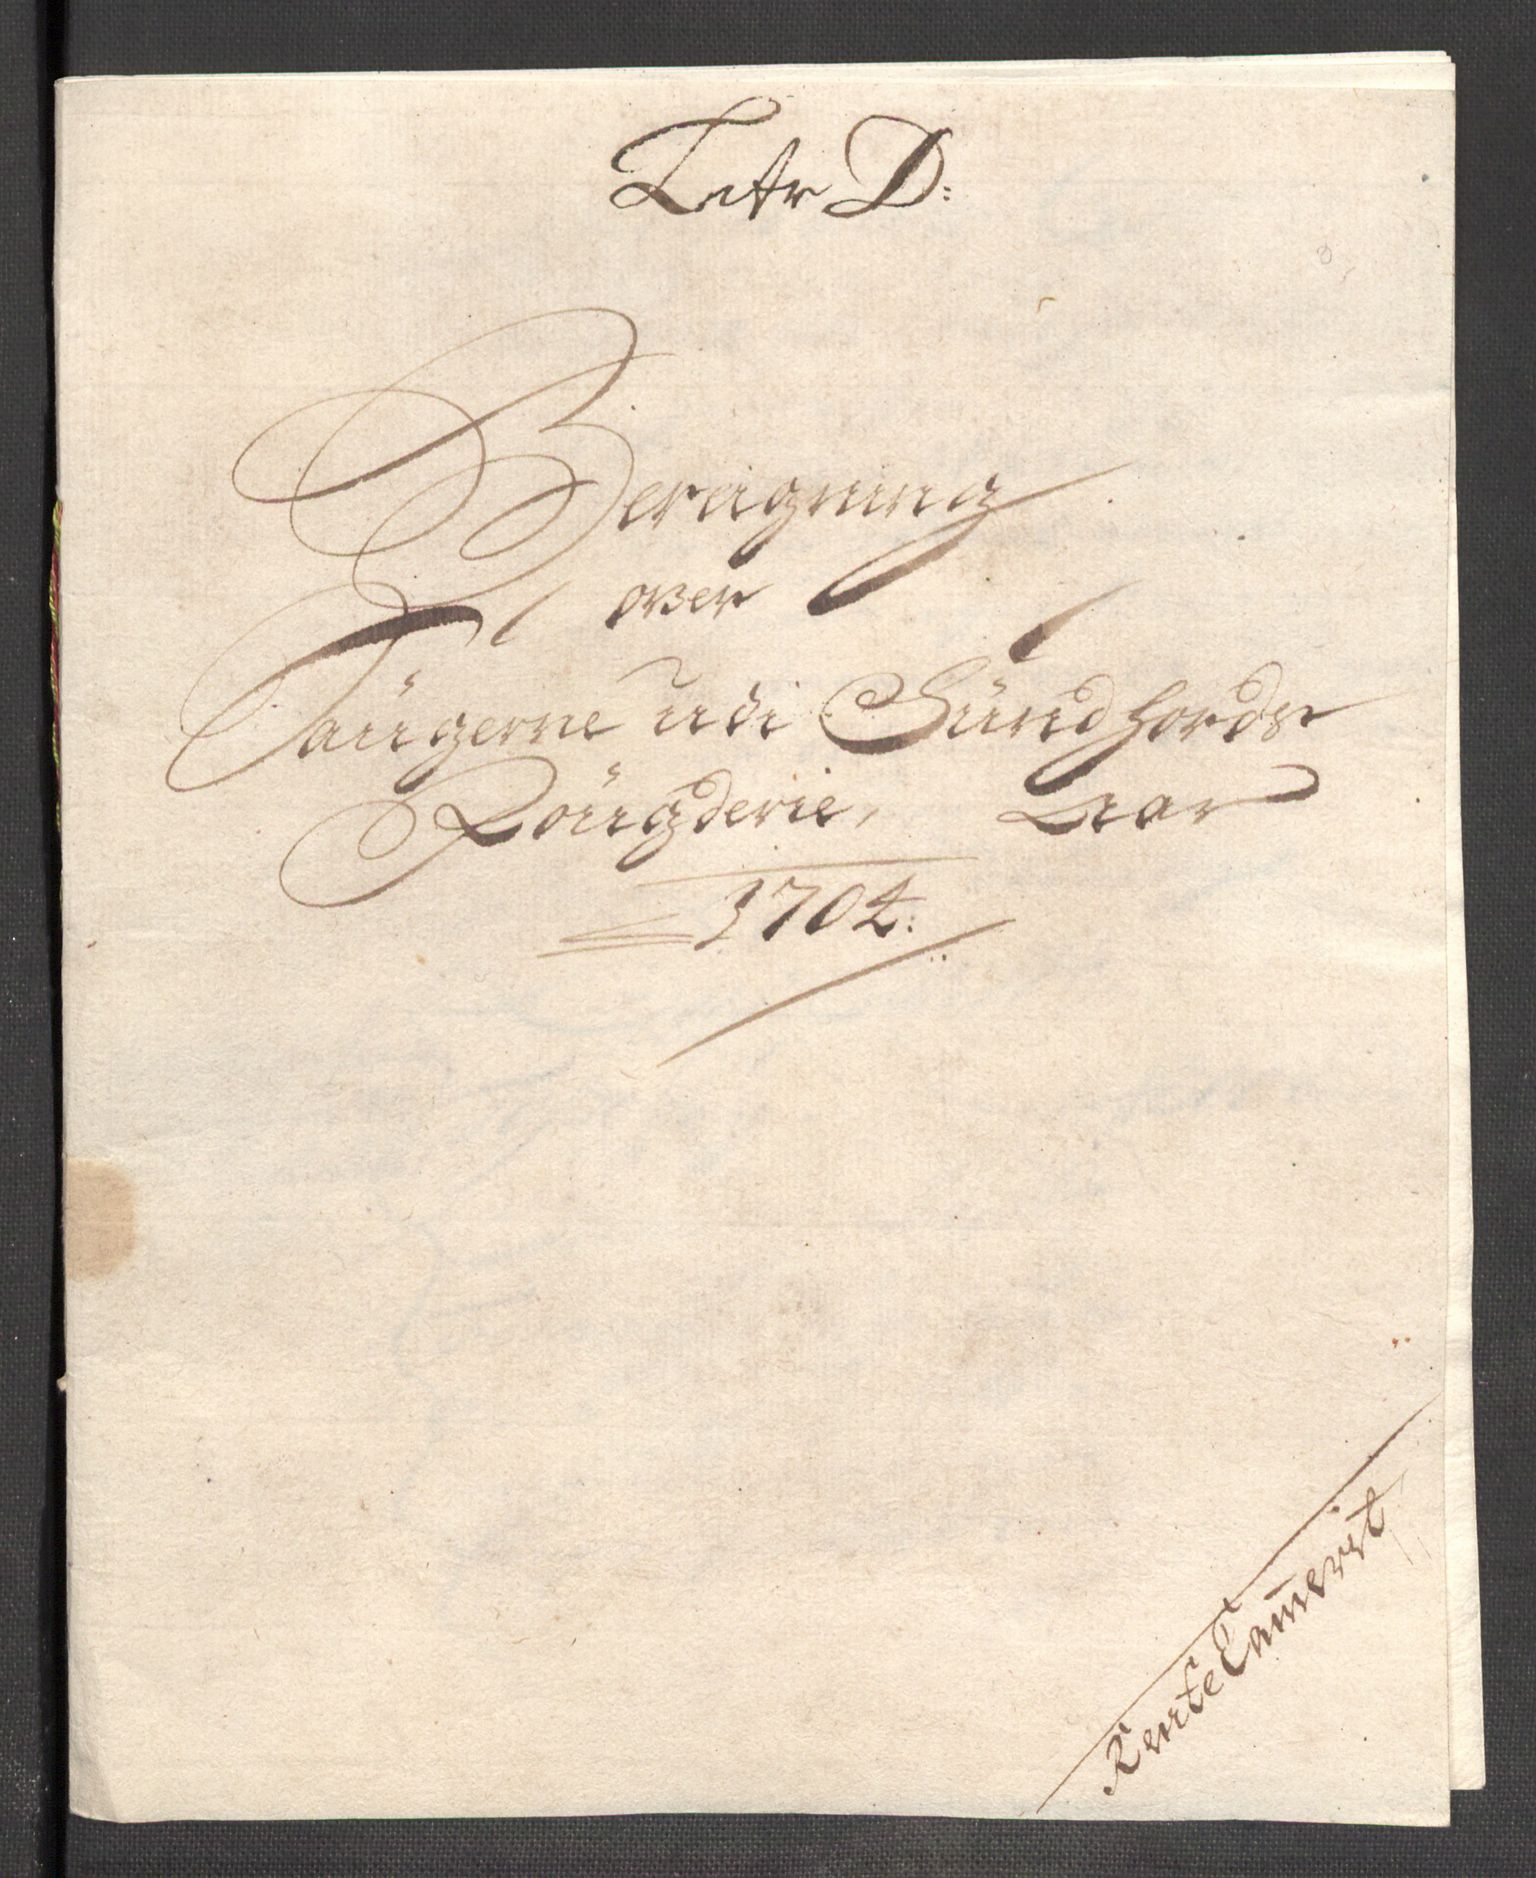 Letr D:
Beregning
over
Saugerne udi Sündhords
Fougderie, Aar
1704:
RenteCammerit